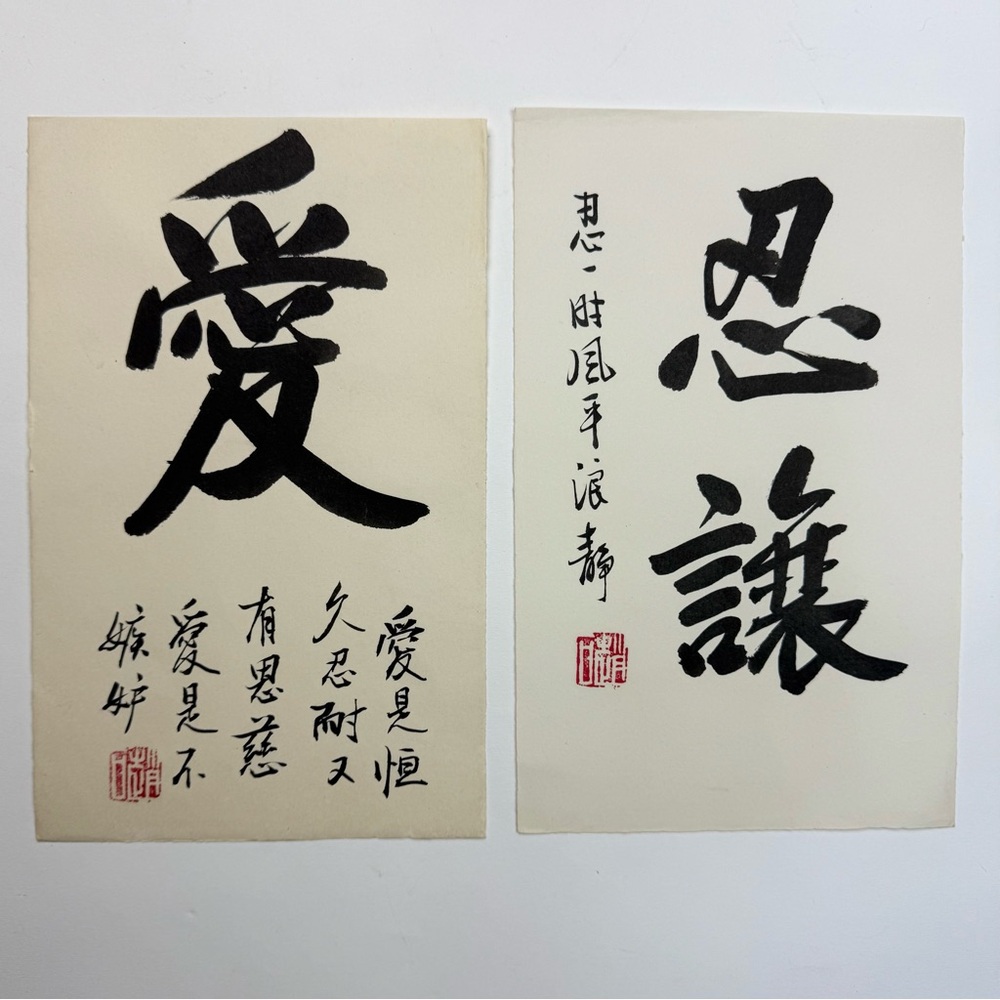 愛
愛是恒
久忍耐又
有恩慈
愛是不
嫉妒
忍讓
忍一时風平浪静